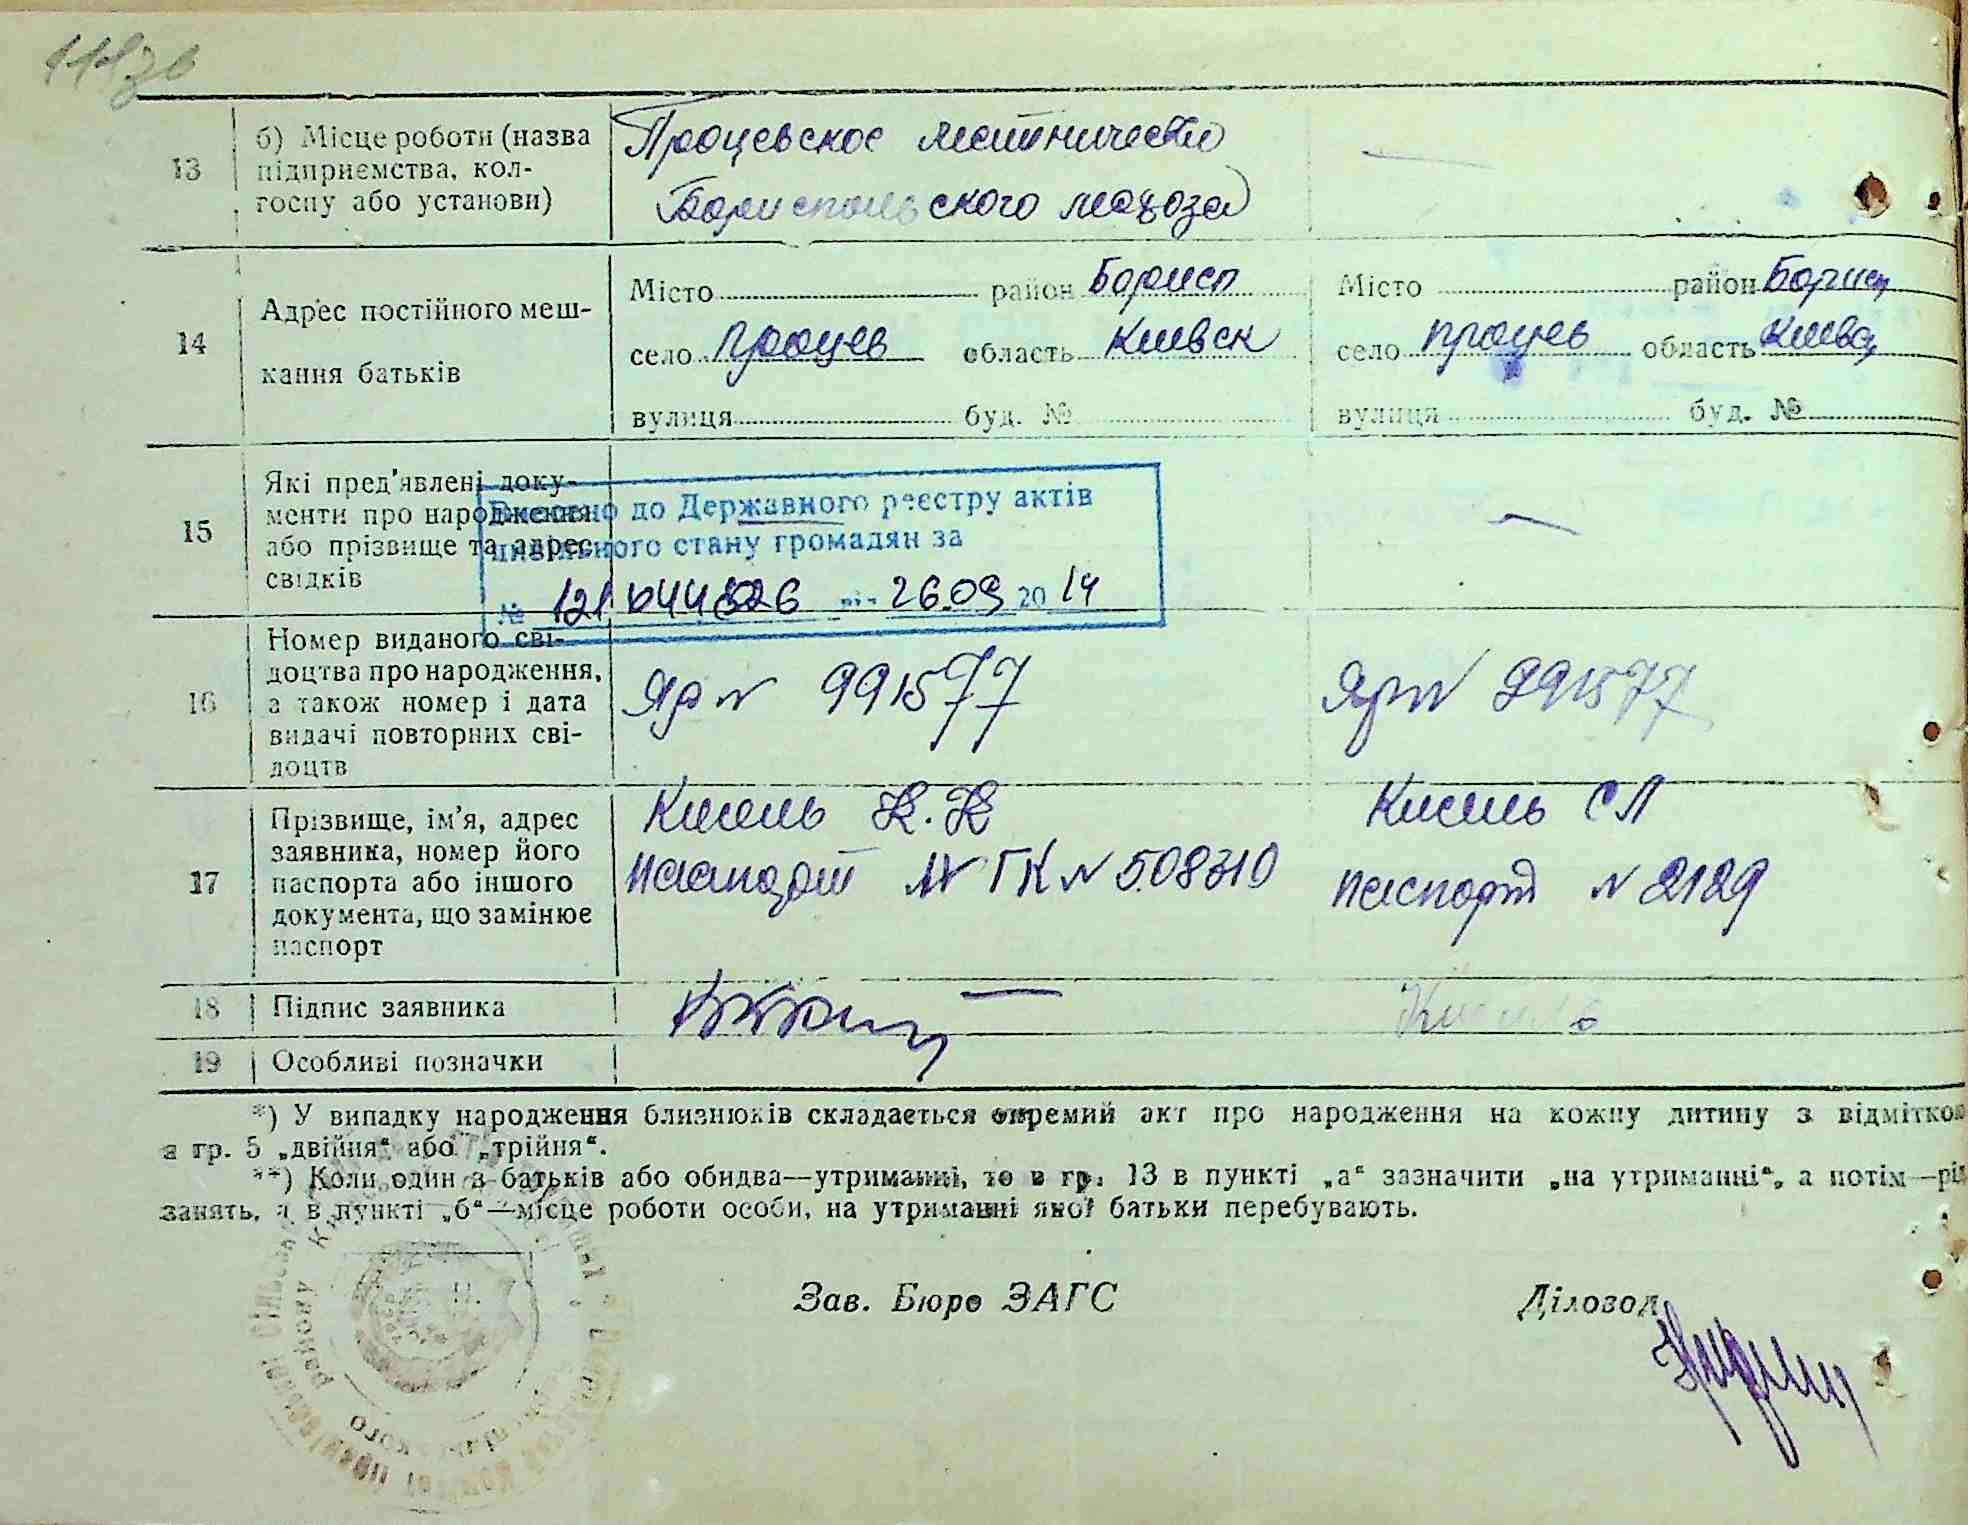 118зв
13
б) Місце роботи (назва
підприємства, кол-
госпу або установи)
Процевское лестничество
Бориспольского лесхоза
14
Адрес постійного меш-
кання батьків
Місто район Борисп
село Процев область Киевск
вулиця буд. №
Місто район Борисп
село Процев область Киевс
вулиця буд. №
15
Які пред'явлені доку-
менти про народження
або прізвище та адрес
свідків
Внесено до Державного реєстру актів
цивільного стану громадян за
№ від 26.09 2014
16
Номер виданого сві-
доцтва про народження,
а також номер і дата
видачі повторних сві-
доцтв
Яр № 991577
Яр № 991577
17
Прізвище, ім'я, адрес
заявника, номер його
паспорта або іншого
документа, що замінює
паспорт
Кисель
Паспорт ГК № 508310
Кисель СЛ
паспорт № 2129
18
Підпис заявника
19
Особливі позначки
*) У випадку народження близнюків складається окремий акт про народження на кожну дитину з відміткою
в гр. 5 „двійня“ або „трійня“.
**) Коли один з батьків або обидва—утриманні, то в гр. 13 в пункті „а“ зазначити „на утриманні“, а потім—рід
занять, а в пункті „б“—місце роботи особи, на утриманні якої батьки перебувають.
Зав. Бюро ЗАГС
Діловод